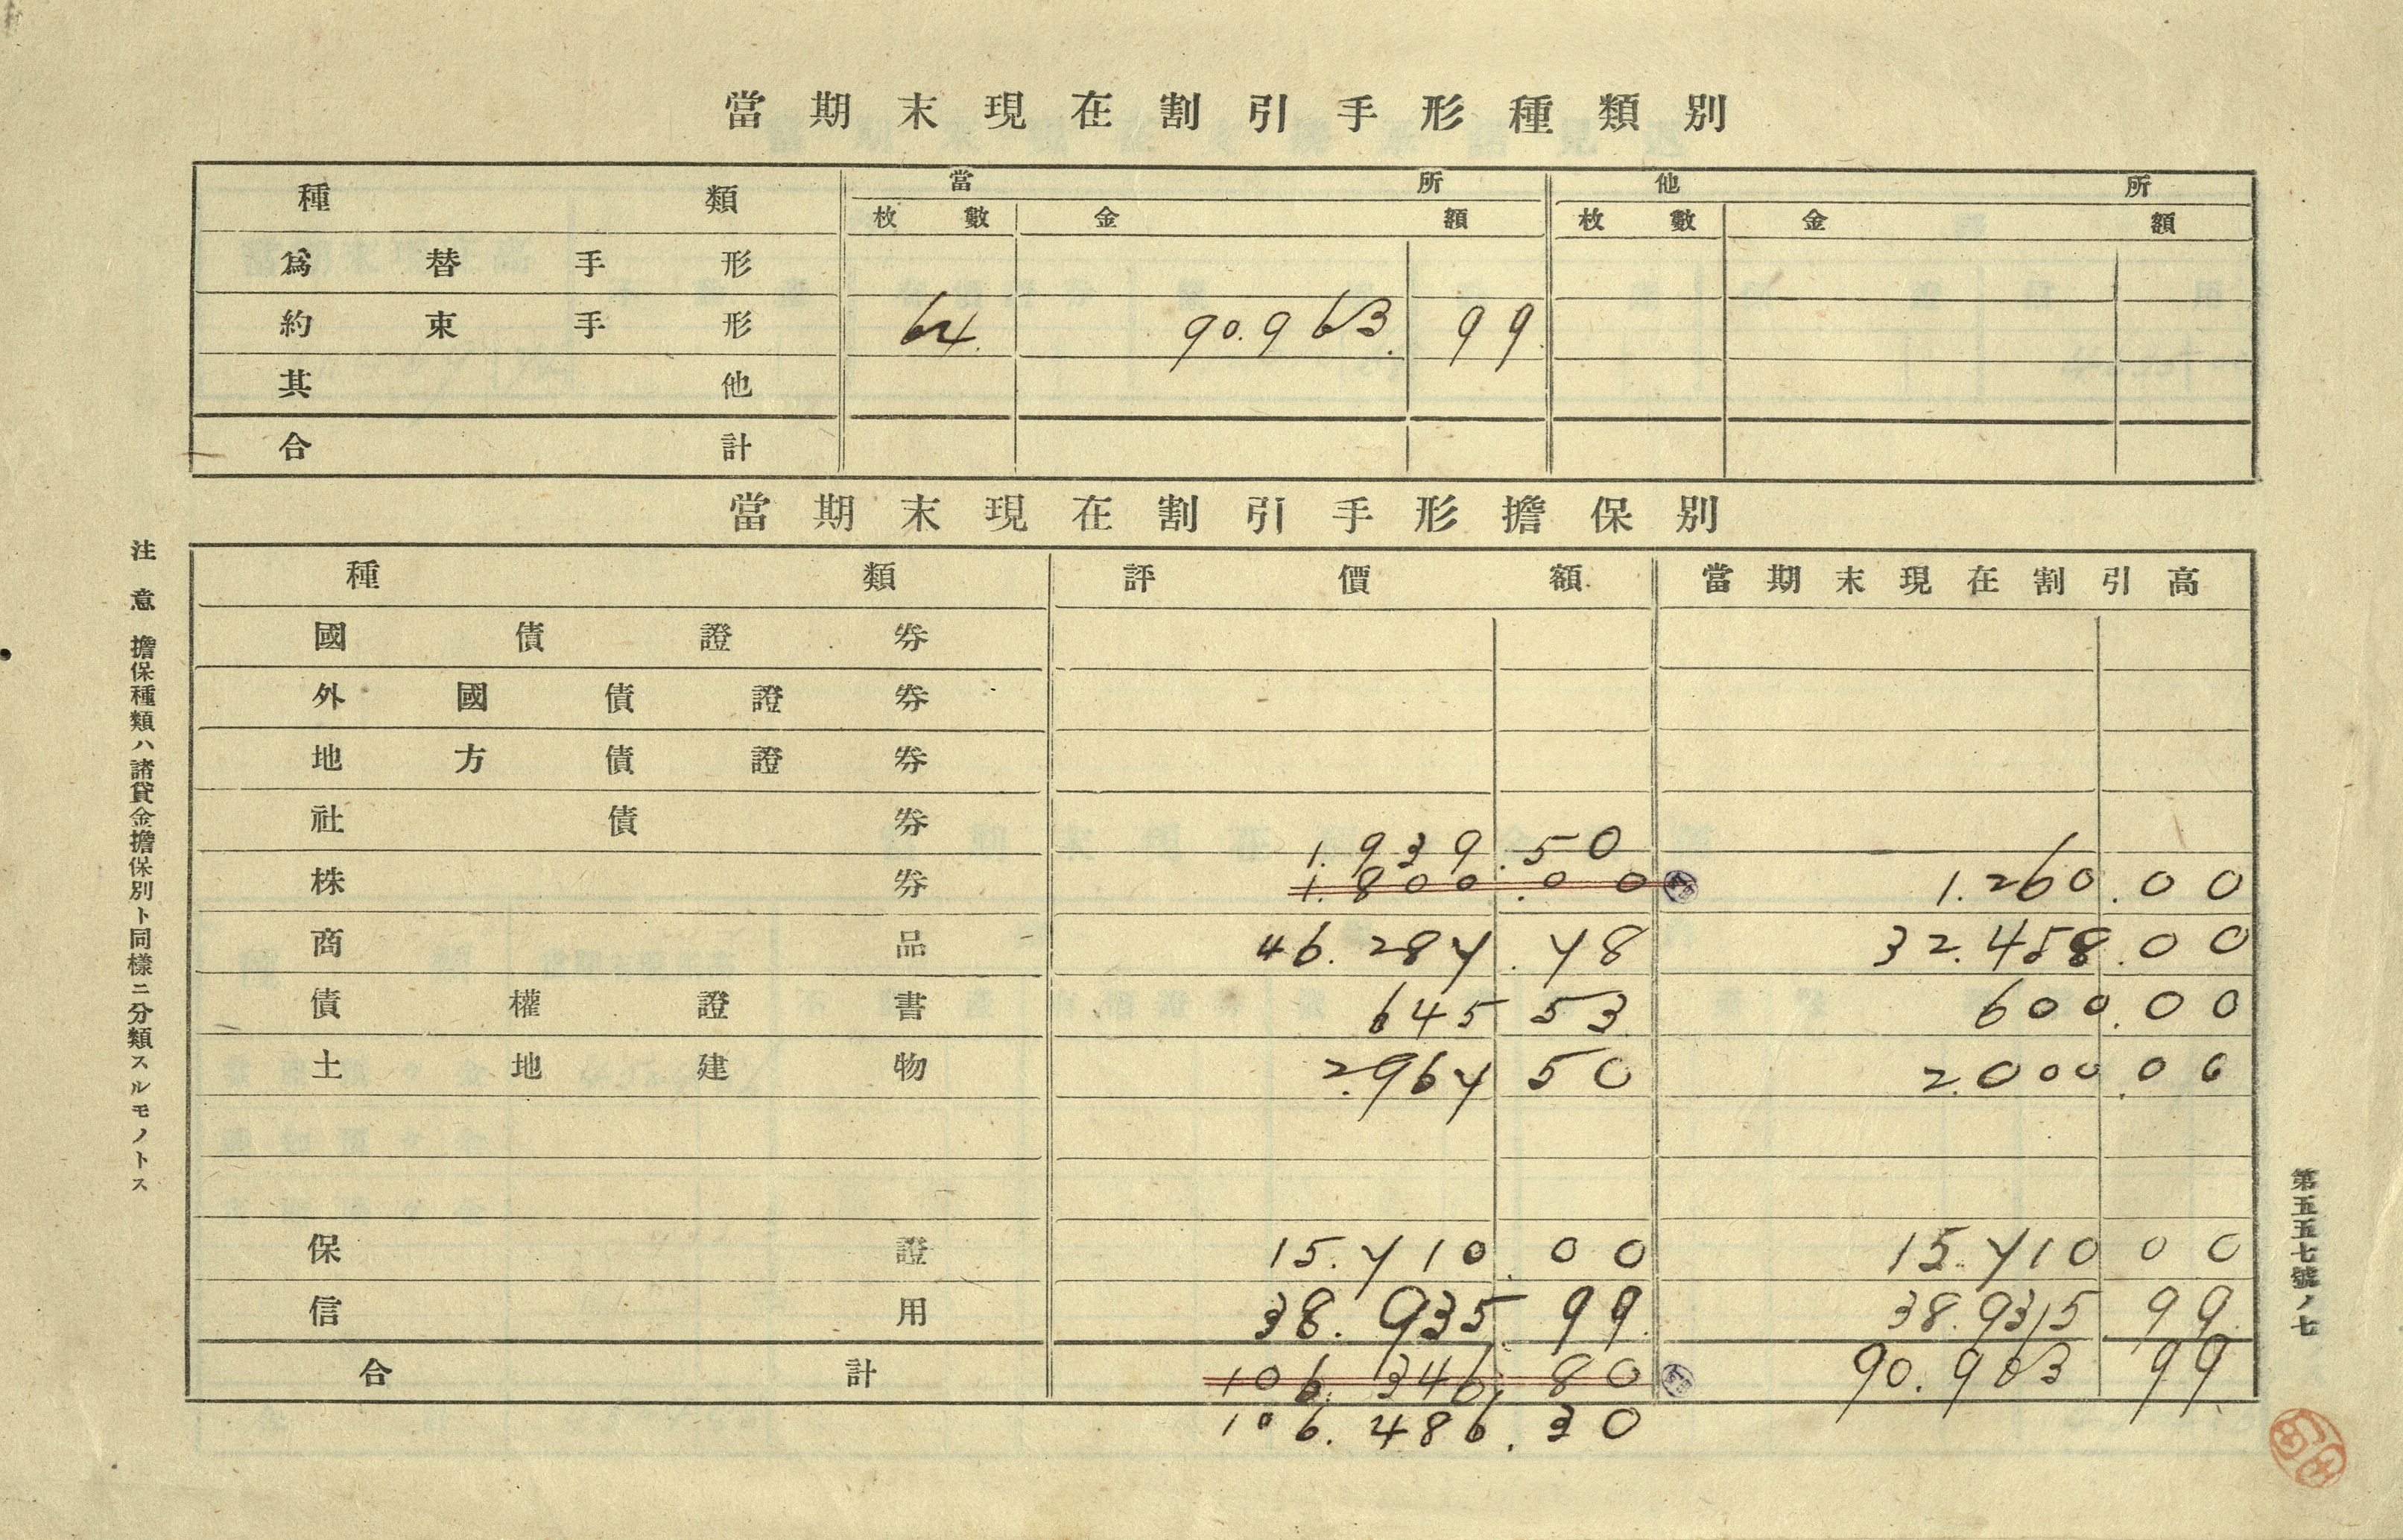 當期末現在割引手形種類別
種類 當所 他所
枚數 金額 枚數 金額
爲替手形
約束手形 64. 90.963. 99
其他
合計
當期末現在割引手形擔保別
種類 評價額 當期末現在割引高
國債證券
外國債證券
地方債證券
社債券
1.939.50
株券 1.800.00 1.260.00
商品 46.287.78 32.458.00
債權證書 645 53 600.00
土地建物 2.967 50 2.000.00
保證 15.710.00 15.710 00
信用 38.935 99. 38.935 99.
合計 106.346.80 90.963 99
106.486.30
注意 擔保種類ハ諸貸金擔保別ト同樣ニ分類スルモノトス
第五五七號ノ七